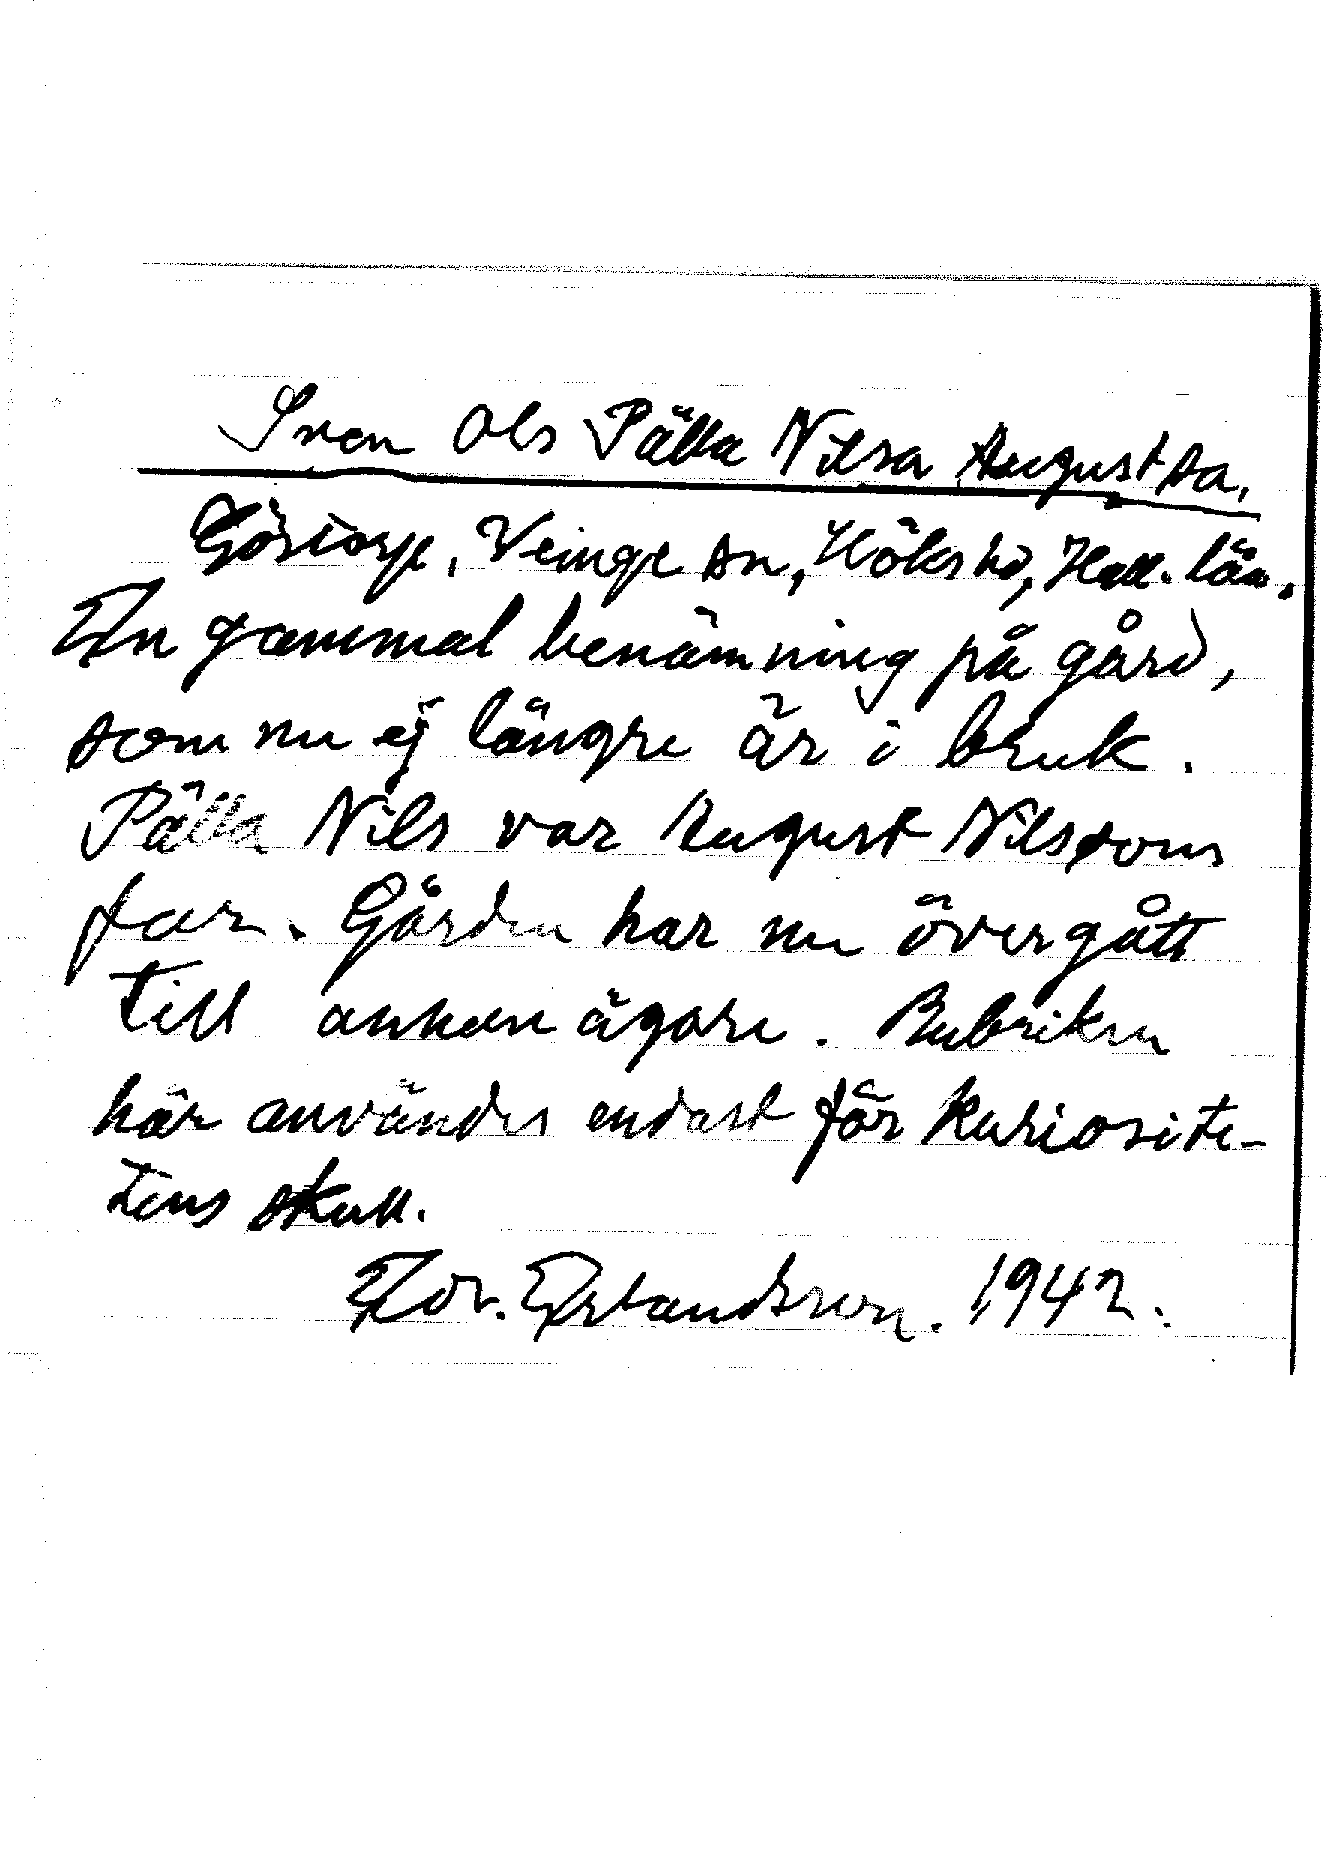 Sven Ols Pälla Nilsa Augustsa.
Göstorp, Veinge sn, Höks hd, Hall. län.
En gammal benämning på gård,
som nu ej längre är i bruk.
Pälla Nils var August Nilssons
far. Gården har nu övergått
till annan ägare. Rubriken
här användes endast för kuriosite-
tens skull.
Edv. Erlandsson. 1942.